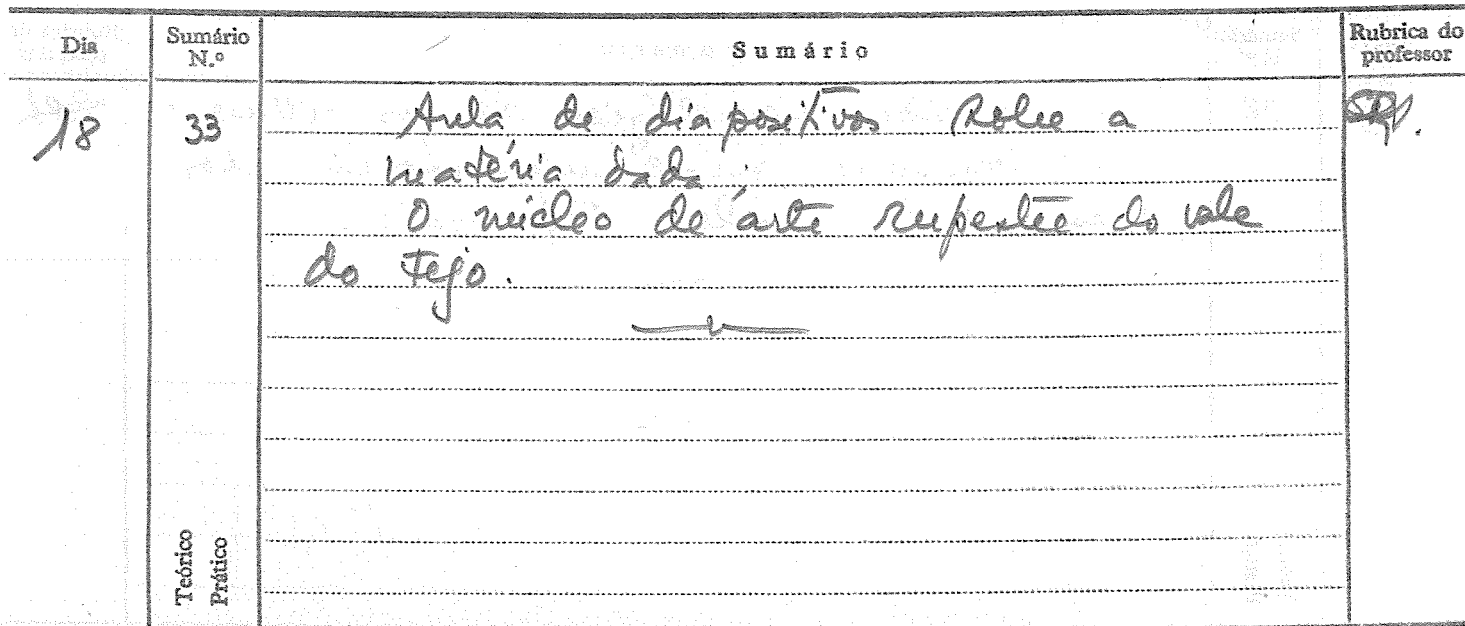 Dia Sumário N.º Sumário Rubrica do professor
18 33 Aula de diapositivos sobre a
matéria dada.
O núcleo de arte rupestre do vale
do Tejo.
Teórico
Prático